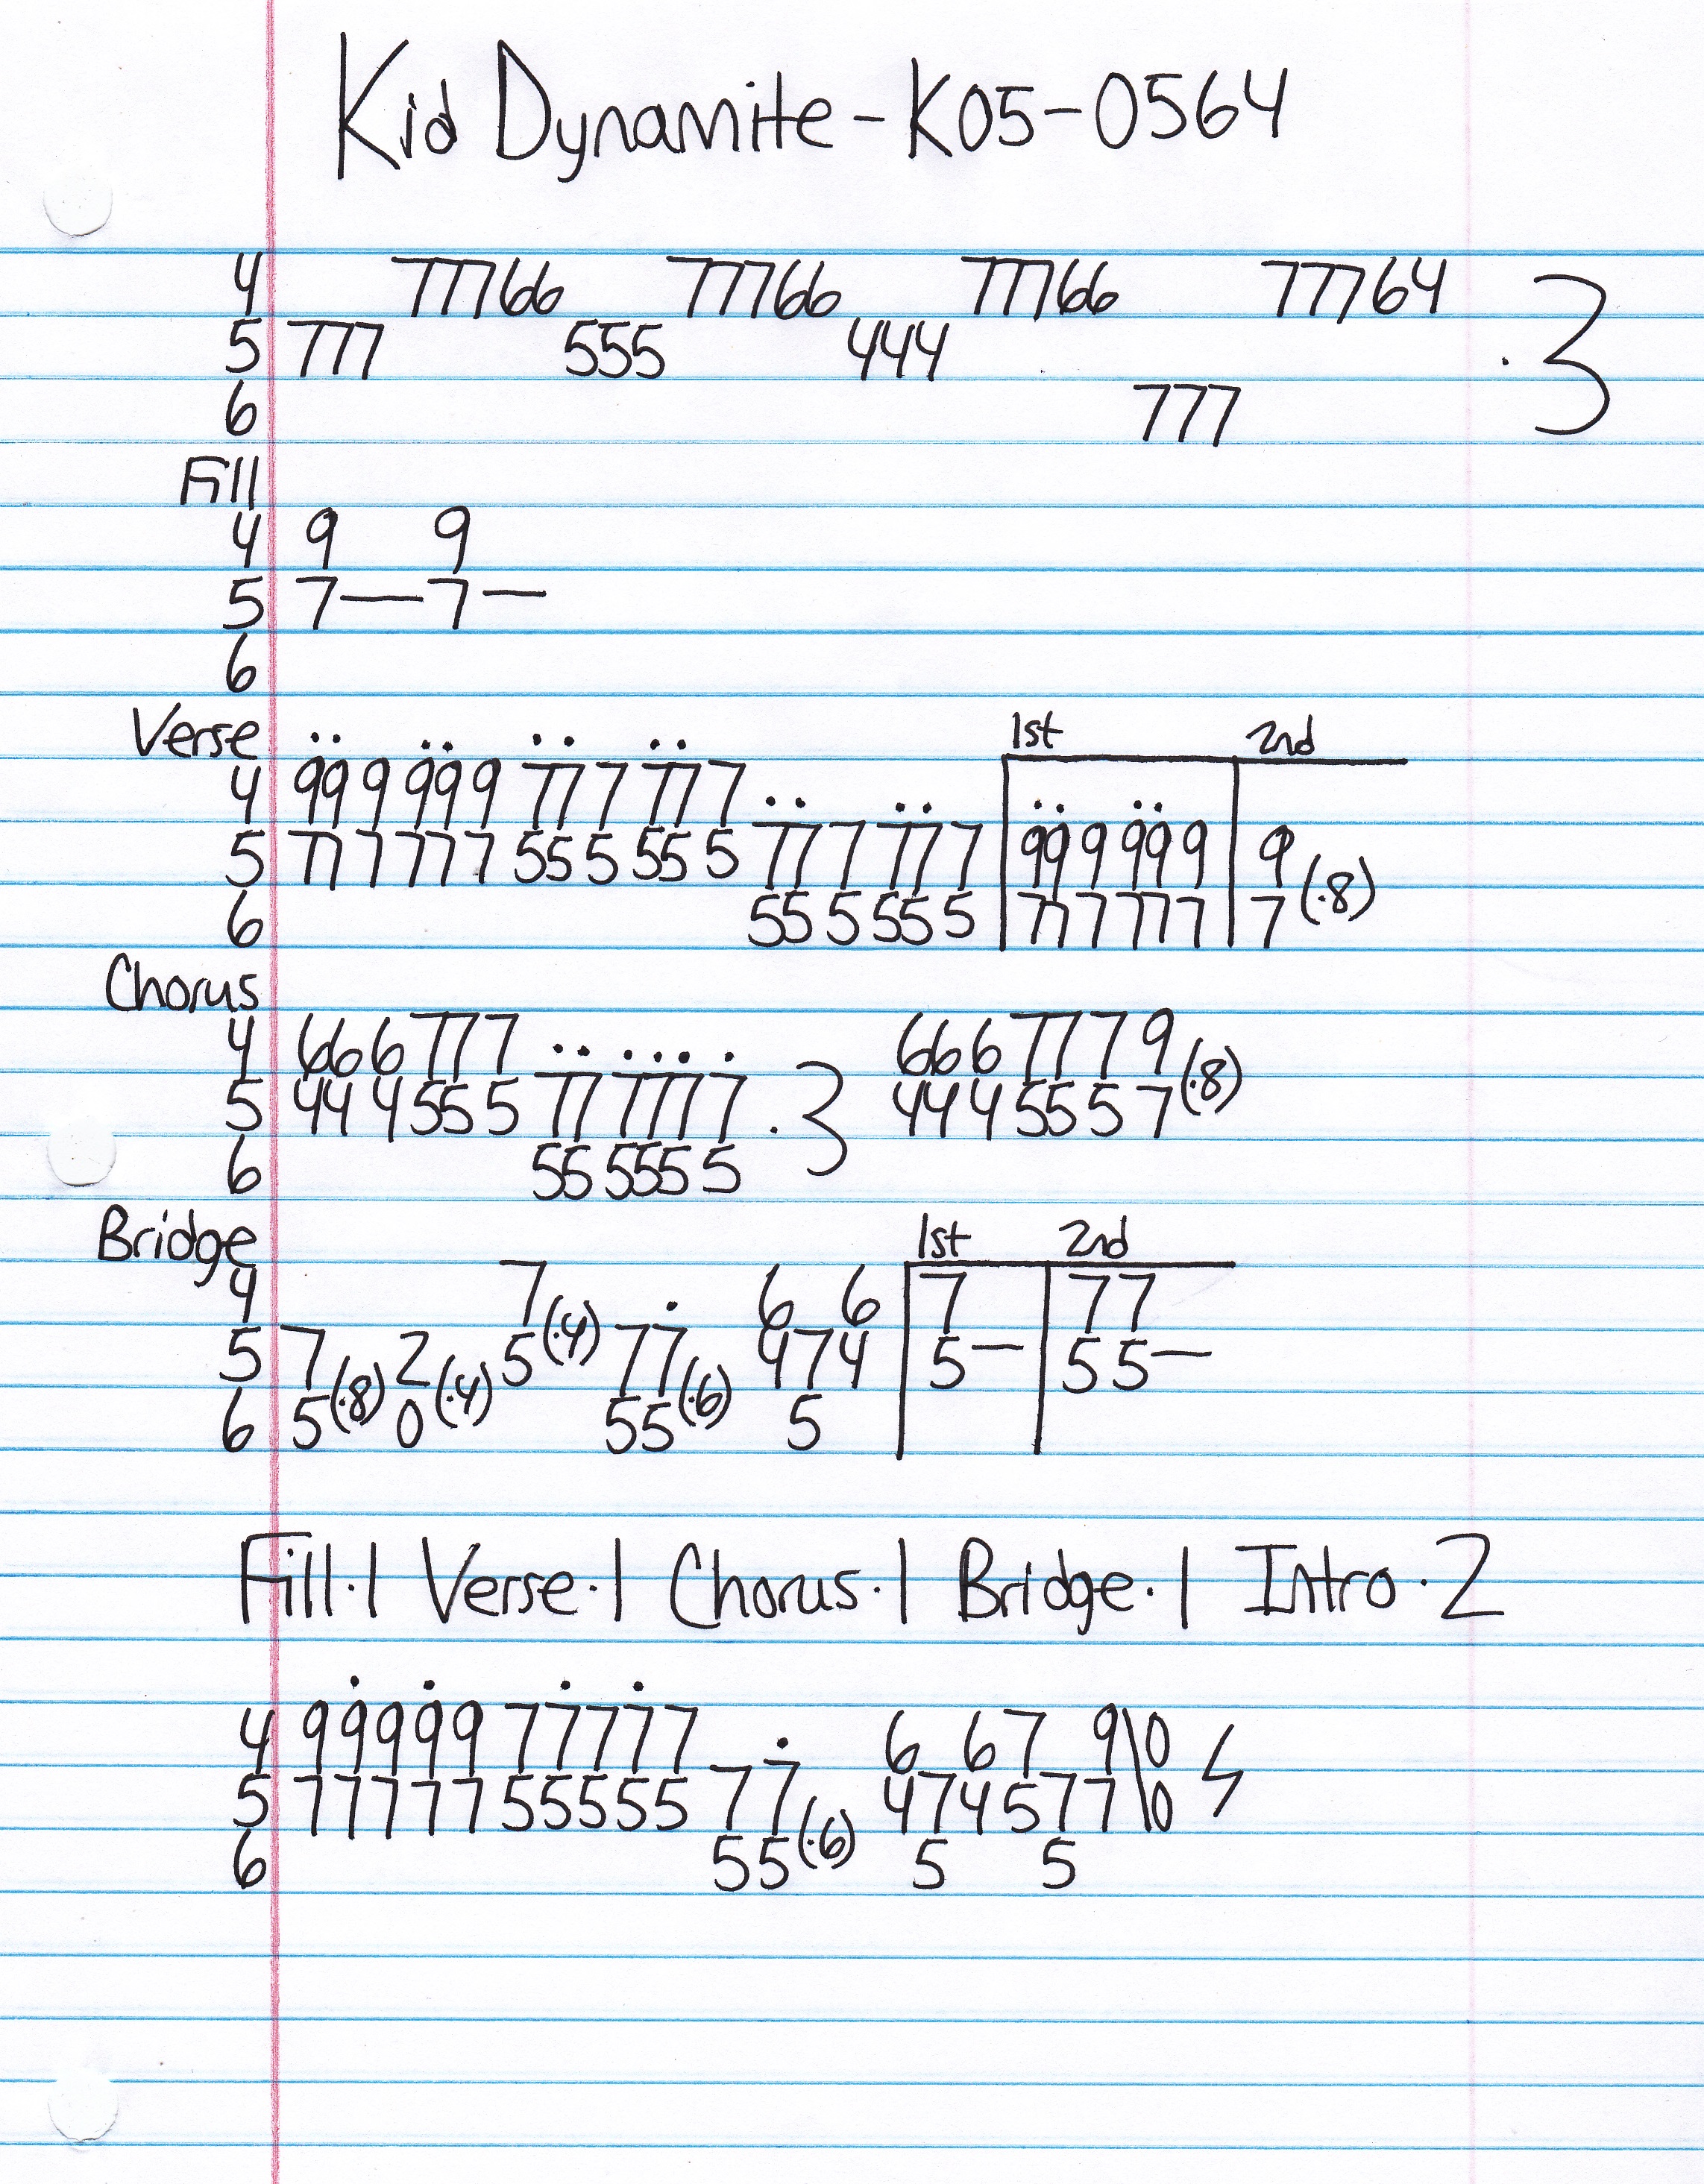 Kid Dynamite - K05-0564
4 77766 77766 77766 77764
5 777 555 444 .3
6 777
Fill
4 9 9
5 7—7—
6
Verse .. .. .. .. 1st 2nd
4 99 9 99 9 77 7 77 7 .. .. .. ..
5 77 7 77 7 55 5 55 5 77 7 77 7 99 9 99 9 9 (.8)
6 55 5 55 5 77 7 77 7 7
Chorus
4 666777 .. .... . 6667779 (.8)
5 444555 77 777 7 .3 4445557
6 55 555 5
Bridge 1st 2nd
4 7 (.4) . 6 6 7 77
5 7 (.8) 2 (.4) 5 77 (.6) 474 5— 55—
6 5 0 55 5
Fill.1 Verse.1 Chorus.1 Bridge.1 Intro.2
. . . .
4 99999 77777 . 6 67 9\0
5 77777 55555 77 (.6) 474577\0
6 55 5 5